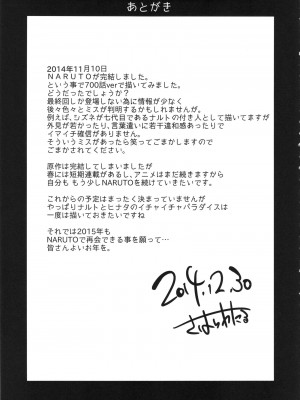 あとがき
2014年11月10日
NARUTOが完結しました。
という事で700話verで描いてみました。
どうだったでしょうか?
最終回しか登場しない為に情報が少なく
後々色々とミスが判明するかもしれませんが。
例えば、シズネが七代目であるナルトの付き人として描いてますが
外見が若かったり、言葉遣いに若干違和感あったりで
イマイチ確信がありません。
そういうミスがあったら笑ってごまかしますので
ごまかされてください。
原作は完結してしまいましたが
春には短期連載があるし、アニメはまだ続きますから
自分も もう少しNARUTOを続けていきたいです。
これからの予定はまったく決まっていませんが
やっぱりナルトとヒナタのイチャイチャパラダイスは
一度は描いておきたいですね
それでは2015年も
NARUTOで再会できる事を願って…
皆さんよいお年を。
2014.12.30
さはらわたる